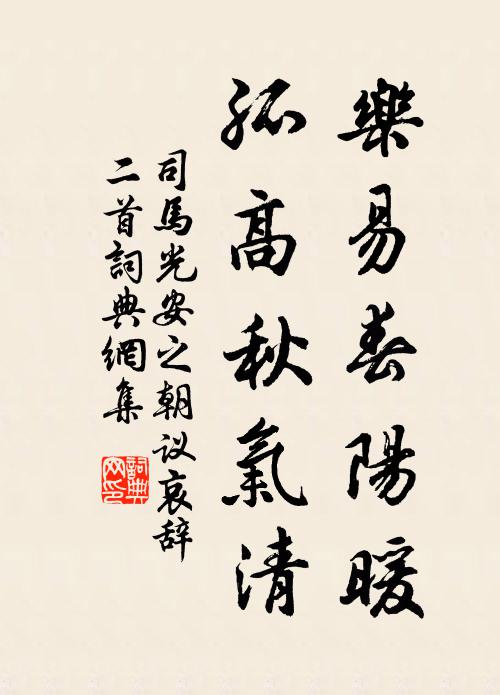 樂易春陽暖
孤高秋氣清
司馬光安之朝议哀辞
二首詞典網集
詞典
网印